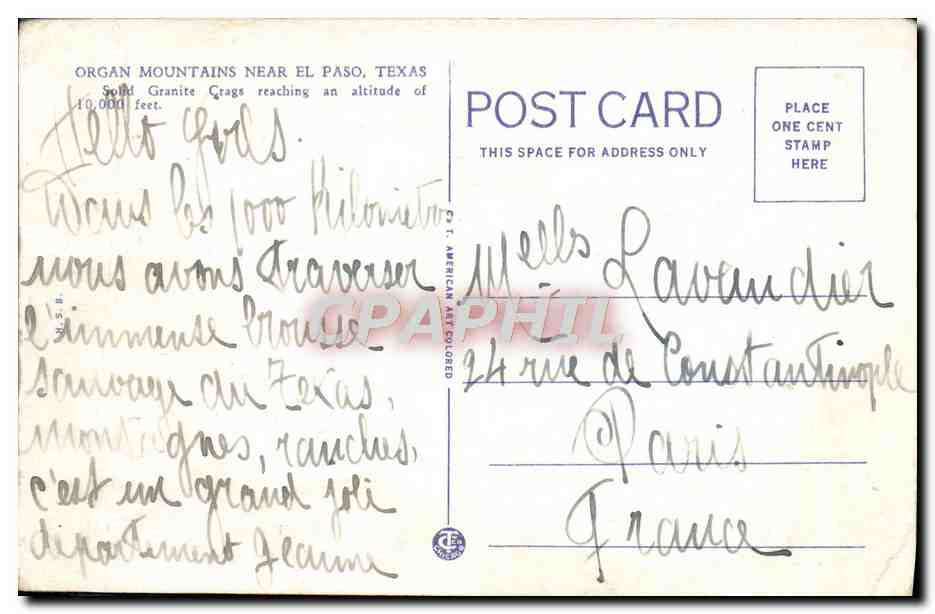 ORGAN MOUNTAINS NEAR EL PASO, TEXAS
Solid Granite Crags reaching an altitude of
10,000 feet.
Hello Girls.
Dans les 1000 Kilometres
nous avons traverser
l'immense brousse
sauvage du Texas,
montagnes, ranches,
c'est un grand joli
departement Jeanne
H. S. B.
C. T. AMERICAN ART COLORED
POST CARD
THIS SPACE FOR ADDRESS ONLY
PLACE
ONE CENT
STAMP
HERE
Melles Lavandier
24 rue de Constantinople
Paris
France
CPAPHIL